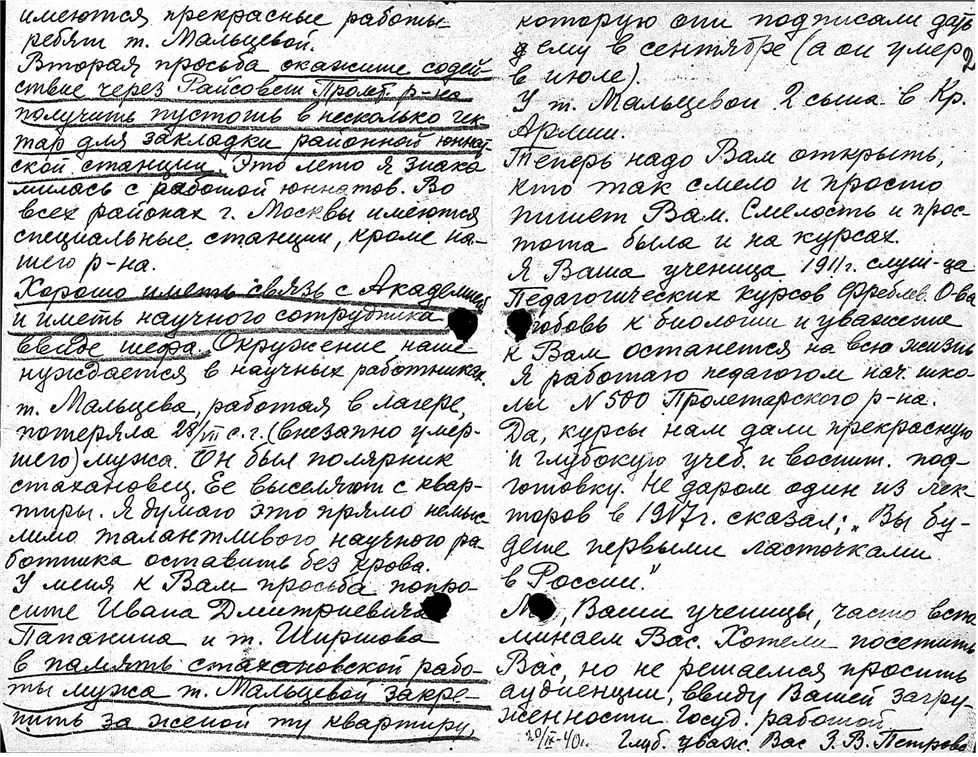 имеются прекрасные работы
ребят т. Мальцевой.
Вторая просьба окажите содей-
ствие через Райсовет Прлет. р-на
получить пустошь в несколько гек-
тар для закладки районной юннат-
ской станции. Это лето я знако
милась с работой юннатов. Во
всех районах г. Москвы имеются
специальные станции, кроме на-
шего р-на.
Хорошо иметь связь с Академией
и иметь научного сотрудника
ввиде шефа. Окружение наше
нуждается в научных работниках.
т. Мальцева, работая в лагере,
потеряла 28/VII с.г. (внезапно умер-
шего) мужа. Он был полярник
стахановец. Ее выселяют с квар-
тиры. Я думаю это прямо немыс-
лимо талантливого научного ра-
ботника оставить без крова.
У меня к Вам просьба попро-
сите Ивана Дмитриевича
Папанина и т. Ширшова
в память стахановской рабо-
ты мужа т. Мальцевой закре-
пить за женой ту квартиру,
которую они подписали дать
ему в сентябре (а он умер
в июле).
У т. Мальцевой 2 сына в Кр.
Армии.
Теперь надо Вам открыть,
кто так смело и просто
пишет Вам. Смелость и прос-
тота была и на курсах.
Я Ваша ученица 1911г. слуш-ца
Педагогических курсов Фребелев. О-ва
любовь к биологии и уважение
к Вам останется на всю жизнь
Я работаю педагогом нач. шко-
лы N 500 Пролетарского р-на.
Да, курсы нам дали прекрасную
и глубокую учеб. и воспит. под-
готовку. Не даром один из лек-
торов в 1917г. сказал: „Вы бу-
дете первыми ласточками
в России."
Мы, Ваши ученицы, часто вспо
минаем Вас. Хотели посетить
Вас, но не решаемся просить
аудиенции, ввиду Вашей загру-
женности Госуд. работой
20/IX-40г. Глуб. уваж. Вас З. В. Петрова